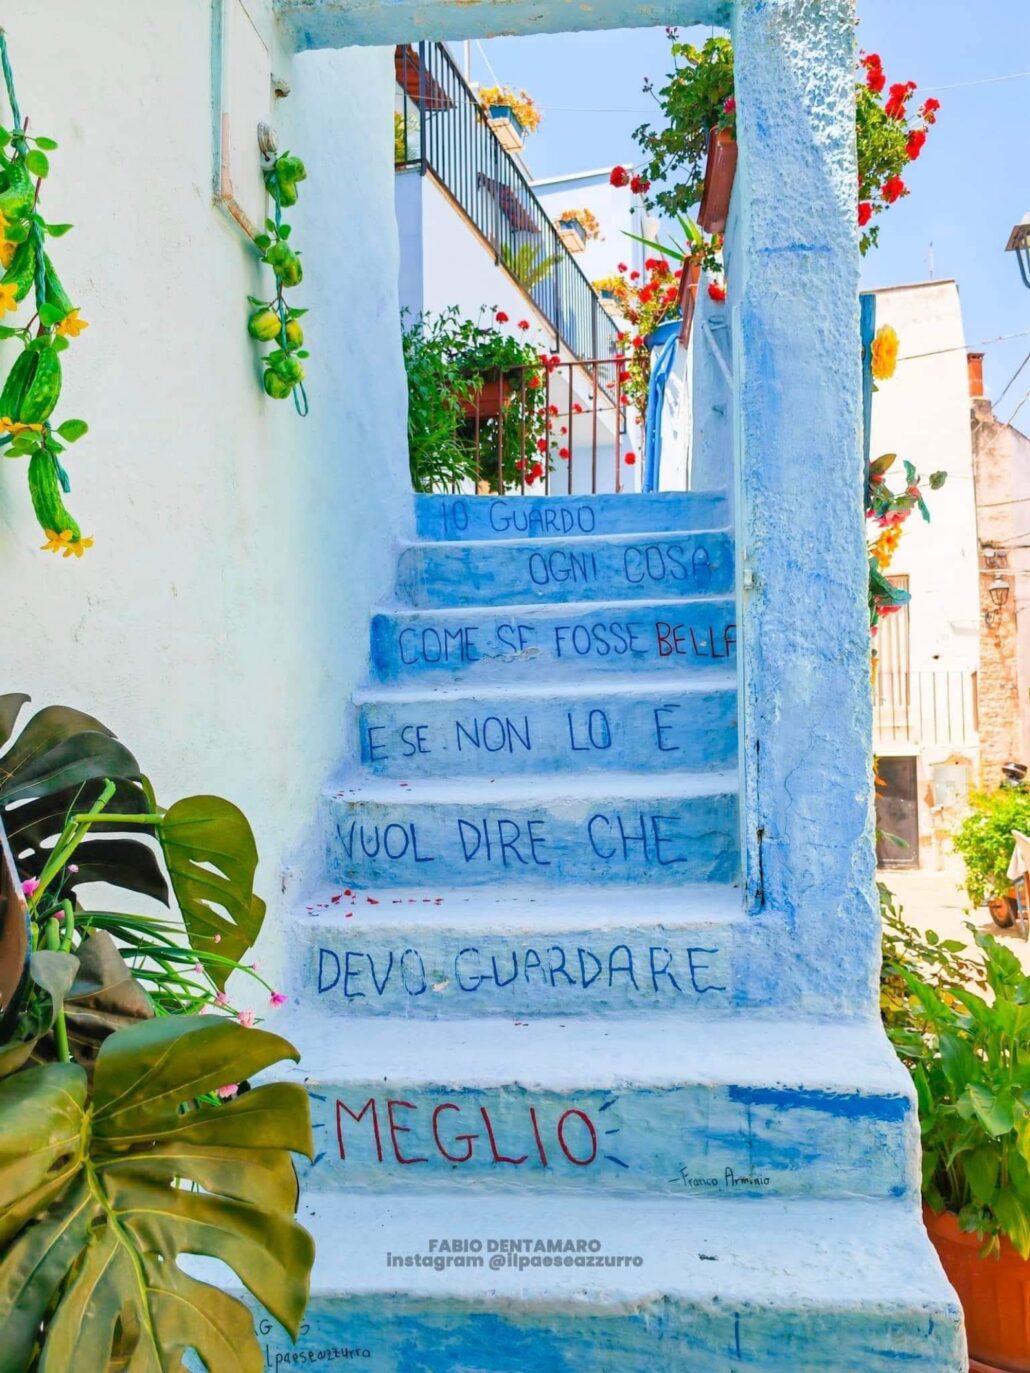 IO GUARDO
OGNI COSA
COME SE FOSSE BELLA
E SE NON LO È
VUOL DIRE CHE
DEVO GUARDARE
MEGLIO
-Franco Arminio
FABIO DENTAMARO
instagram @ilpaeseazzurro
lpaeseazzurro